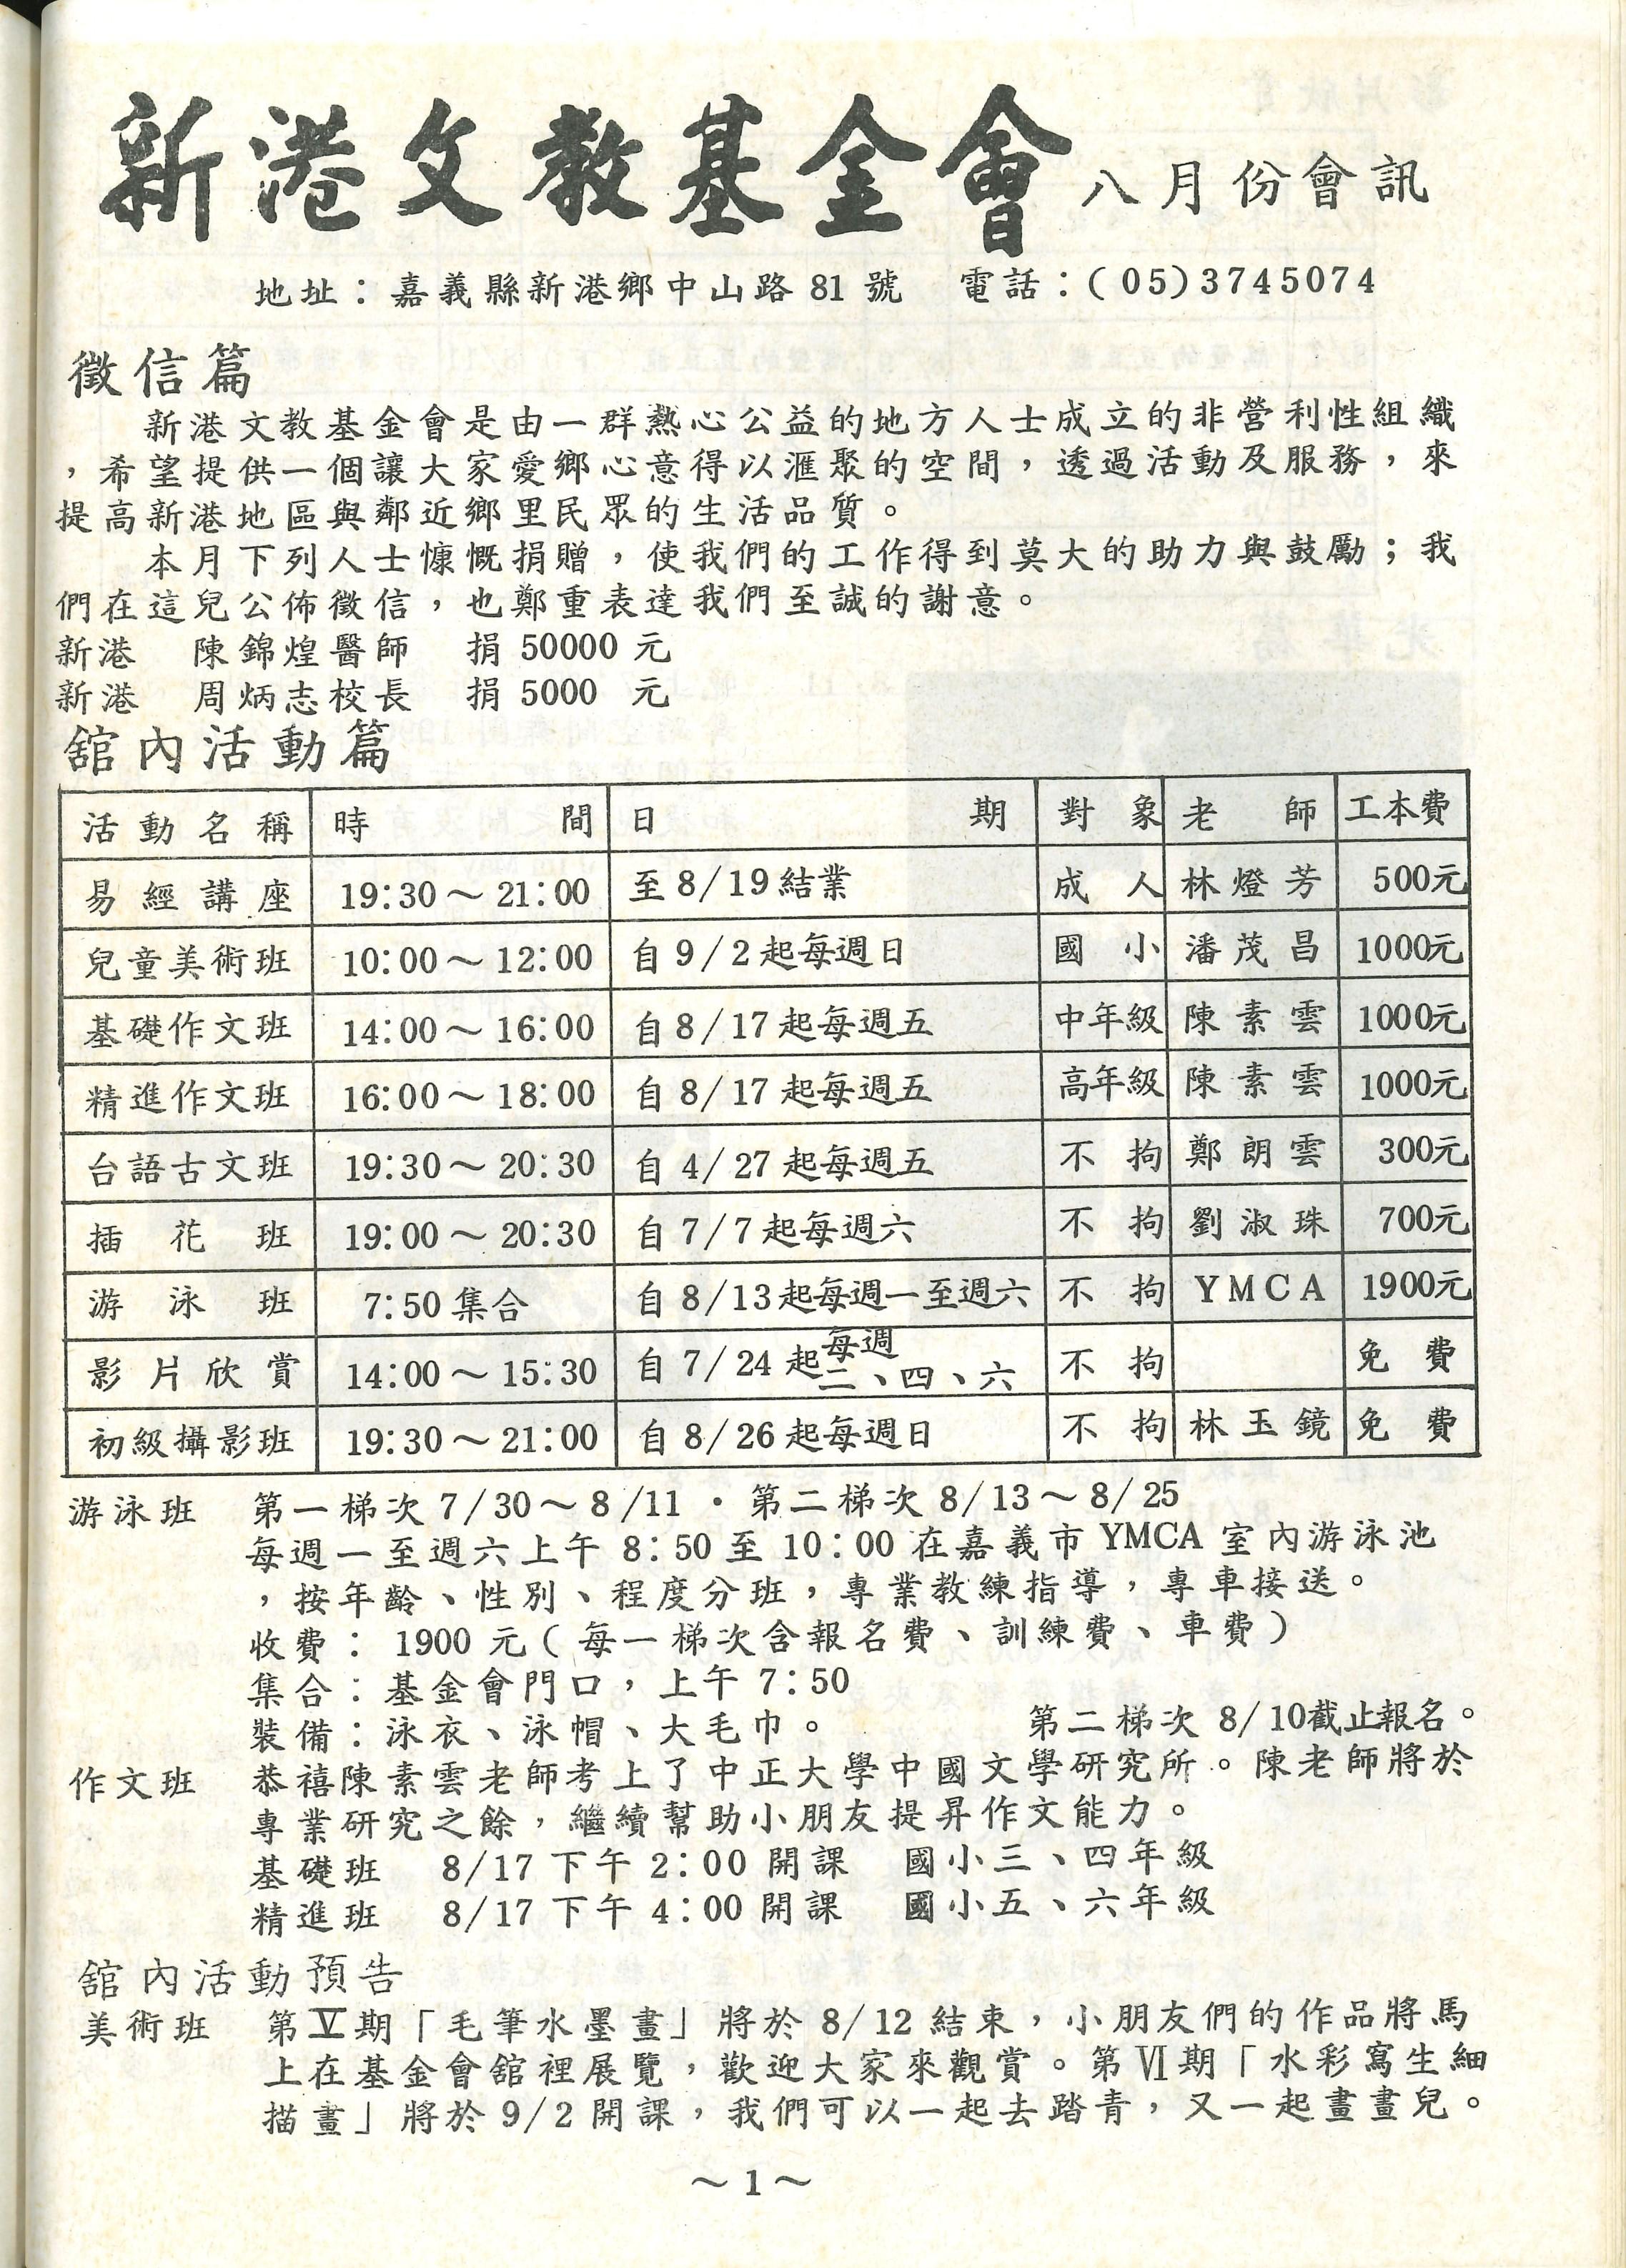 新港文教基金會 八月份會訊
地址：嘉義縣新港鄉中山路81號 電話：(05)3745074
徵信篇
新港文教基金會是由一群熱心公益的地方人士成立的非營利性組織
，希望提供一個讓大家愛鄉心意得以滙聚的空間，透過活動及服務，來
提高新港地區與鄰近鄉里民眾的生活品質。
本月下列人士慷慨捐贈，使我們的工作得到莫大的助力與鼓勵；我
們在這兒公佈徵信，也鄭重表達我們至誠的謝意。
新港 陳錦煌醫師 捐 50000 元
新港 周炳志校長 捐 5000 元
舘內活動篇
活動名稱 時間 日期 對象 老師 工本費
易經講座 19:30～21:00 至8/19結業 成人 林燈芳 500元
兒童美術班 10:00～12:00 自9/2起每週日 國小 潘茂昌 1000元
基礎作文班 14:00～16:00 自8/17起每週五 中年級 陳素雲 1000元
精進作文班 16:00～18:00 自8/17起每週五 高年級 陳素雲 1000元
台語古文班 19:30～20:30 自4/27起每週五 不拘 鄭朗雲 300元
插花班 19:00～20:30 自7/7起每週六 不拘 劉淑珠 700元
游泳班 7:50集合 自8/13起每週一至週六 不拘 YMCA 1900元
影片欣賞 14:00～15:30 自7/24起每週二、四、六 不拘 免費
初級攝影班 19:30～21:00 自8/26起每週日 不拘 林玉鏡 免費
游泳班 第一梯次7/30～8/11・第二梯次8/13～8/25
每週一至週六上午8:50至10:00在嘉義市YMCA室內游泳池
，按年齡、性別、程度分班，專業教練指導，專車接送。
收費：1900元（每一梯次含報名費、訓練費、車費）
集合：基金會門口，上午7:50
裝備：泳衣、泳帽、大毛巾。 第二梯次8/10截止報名。
作文班 恭禧陳素雲老師考上了中正大學中國文學研究所。陳老師將於
專業研究之餘，繼續幫助小朋友提昇作文能力。
基礎班 8/17下午2:00開課 國小三、四年級
精進班 8/17下午4:00開課 國小五、六年級
舘內活動預告
美術班 第Ⅴ期「毛筆水墨畫」將於8/12結束，小朋友們的作品將馬
上在基金會舘裡展覽，歡迎大家來觀賞。第Ⅵ期「水彩寫生細
描畫」將於9/2開課，我們可以一起去踏青，又一起畫畫兒。
～1～